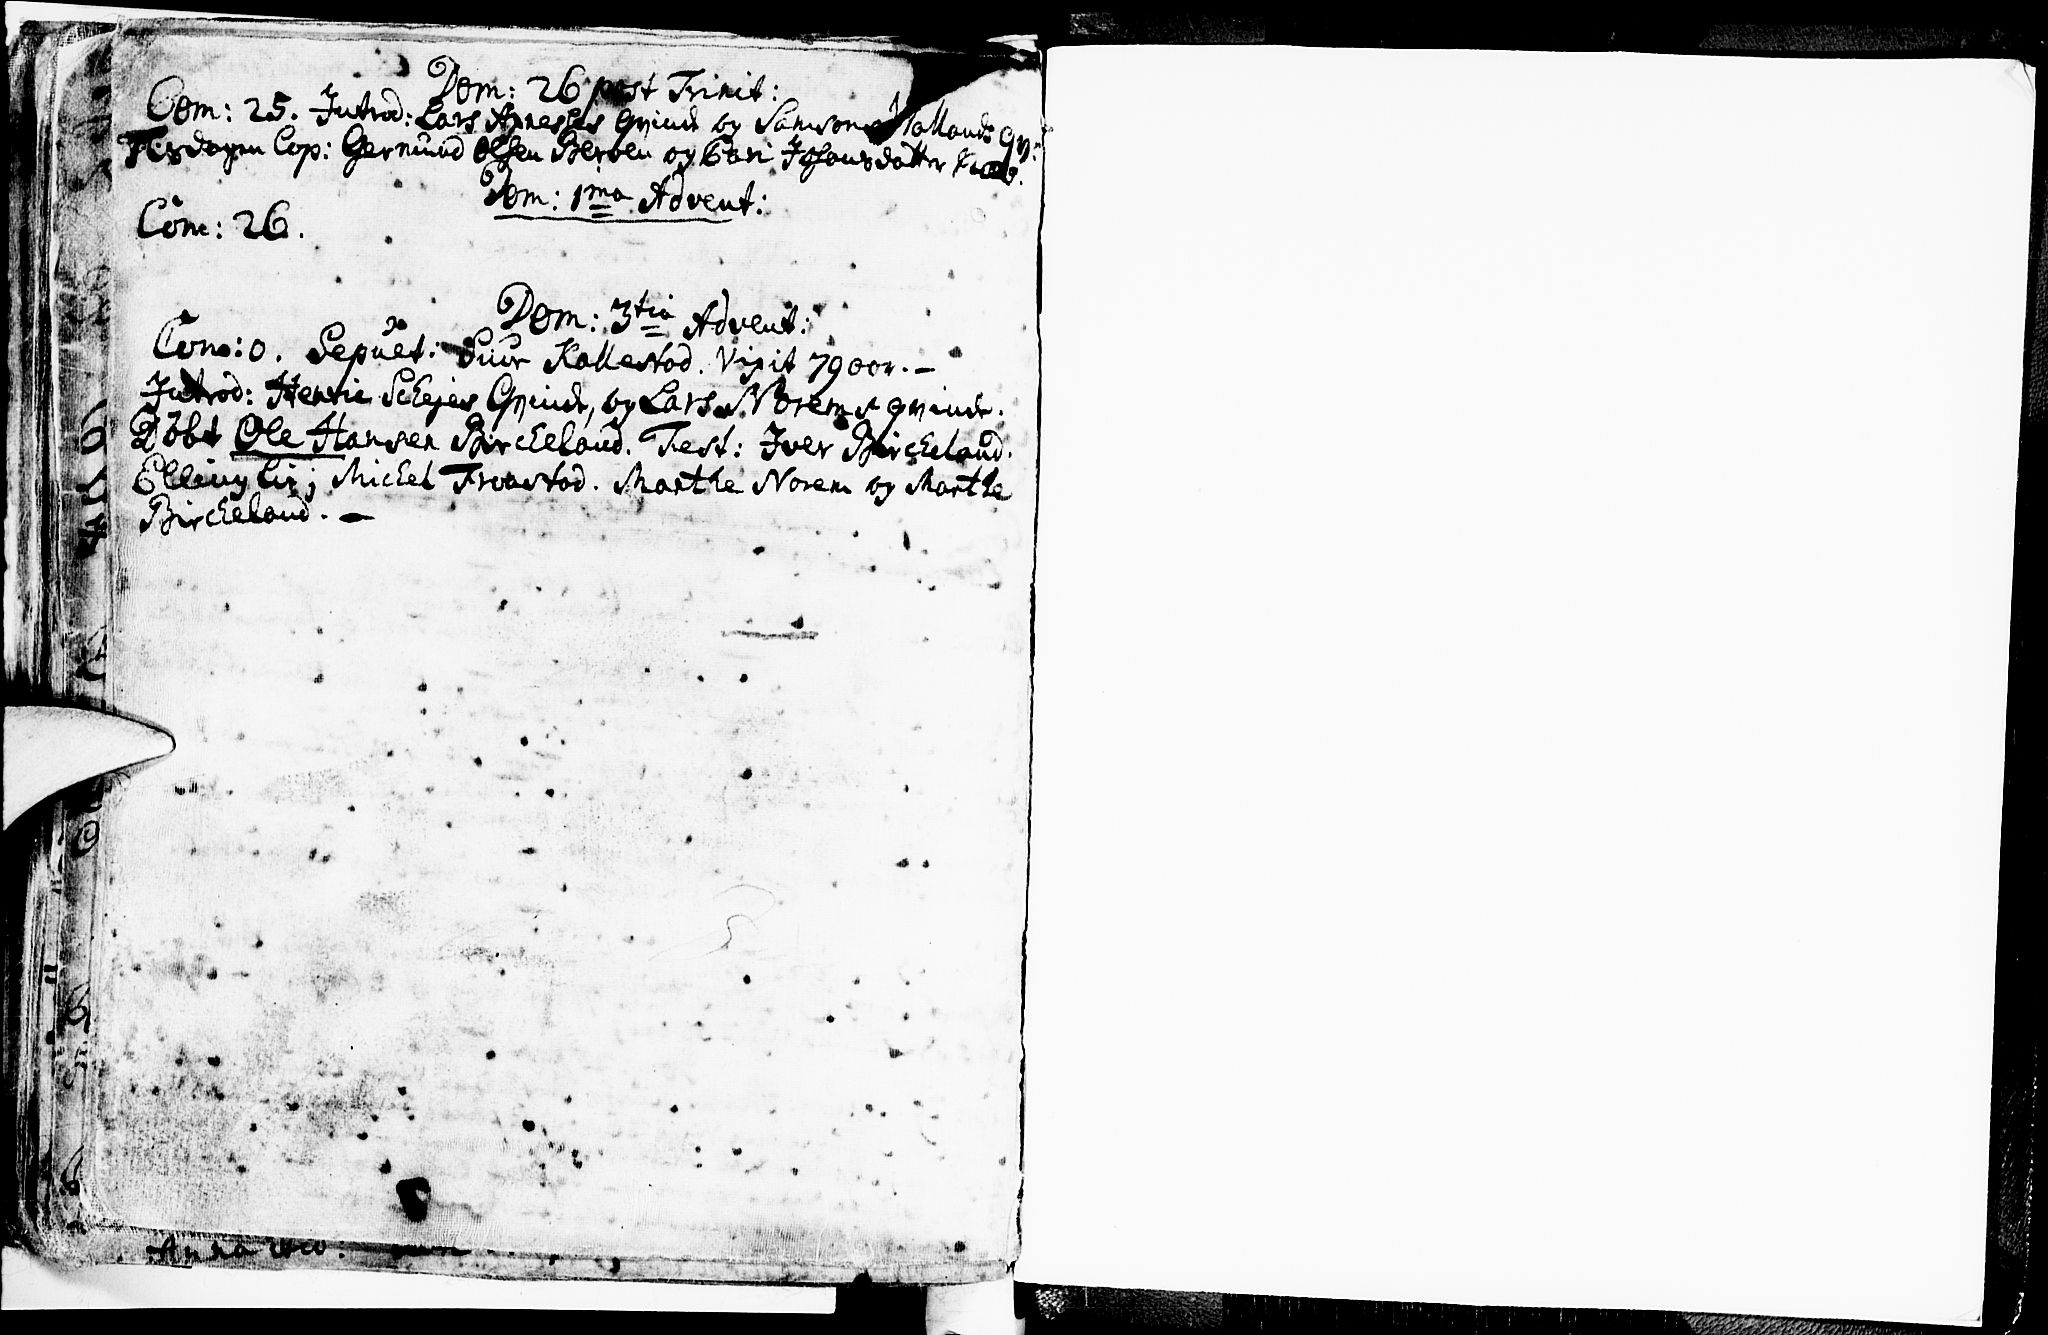 Dom: 26 post Trinit:
Com: 25. Introd: Lars Apnessets Qvinde og Samsons Hallands Qv:
Tirsdagen Cop: Giermund Olsen og Kari Johansdatter
Dom: 1ma Advent:
Com: 26.
Dom: 3tia Advent:
Com: 0. Sepult: Siur Kallestad. Vixit 79 aar. –
Introd: Henric Qvinde, og Lars Norems qvinde.
Döbt Ole Hansen Birckeland. Test: Iver Birckeland.
Elling Lii; Michel Troastad. Marthe Norem og Marthe
Birckeland. –
Anna